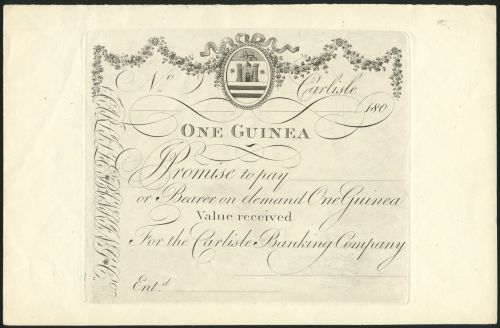 No Carlisle
180
ONE GUINEA
I Promise to pay
or Bearer on demand One Guinea
Value received
For the Carlisle Banking Company
Ent.d